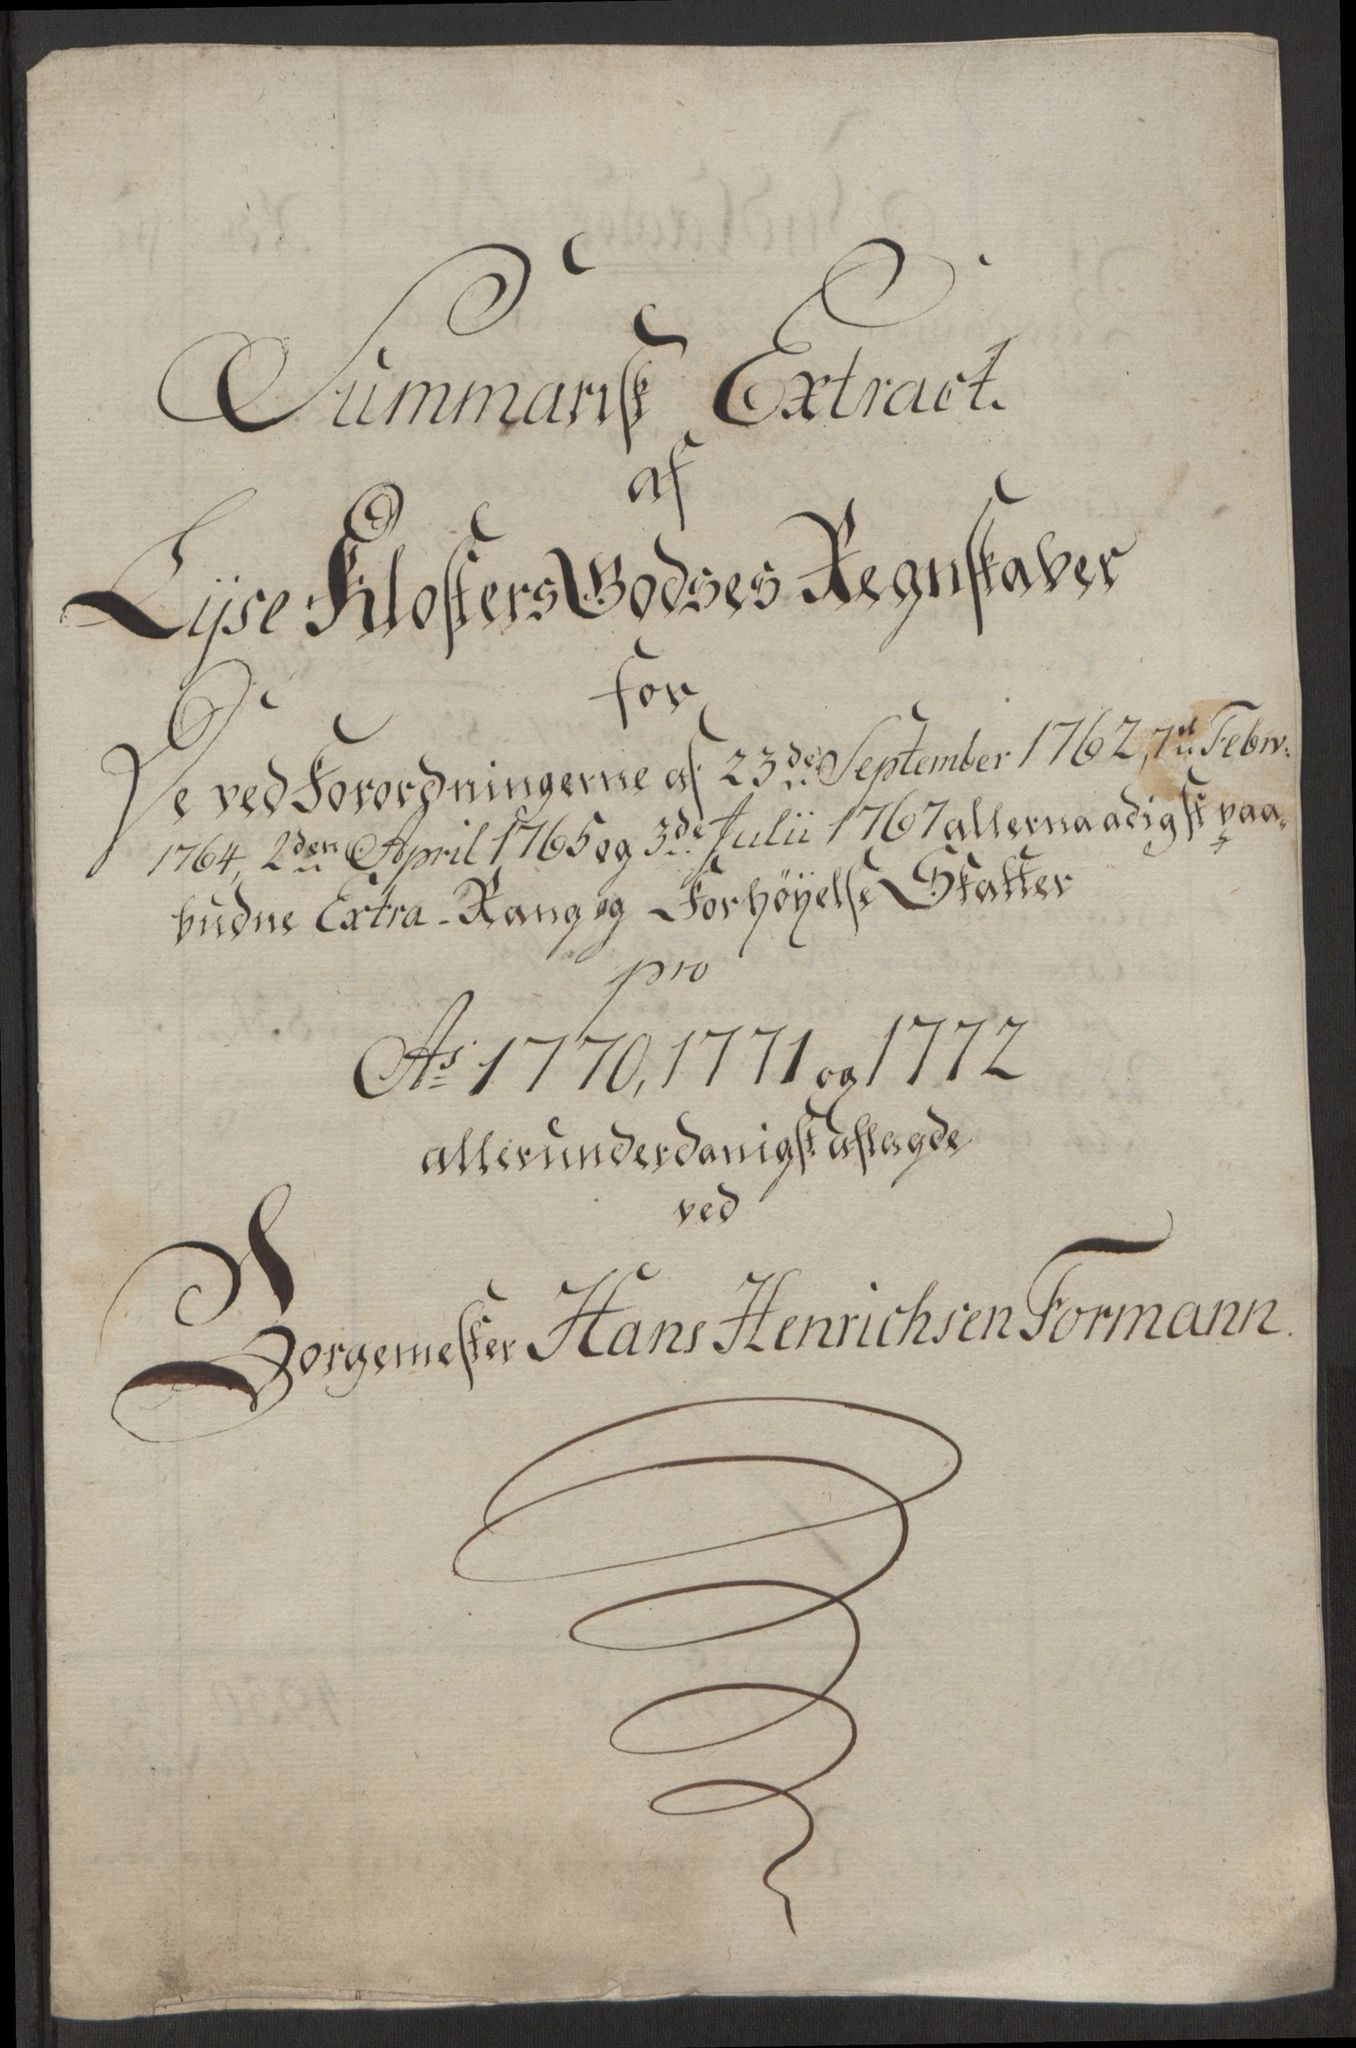 Summarisk Extract.
af
Lyse Klosters Godses Regnskaber
for
De ved Forordningerne af 23de September 1762, 7de Febr:
1764, 2den April 1765 og 3de Julii 1767 allernaadigst paa-
budne Extra- Rang og Forhøyelse Skatter
pro
As 1770, 1771 og 1772
allerunderdanigst aflagde
ved
Borgemester Hans Henrichsen Formann.